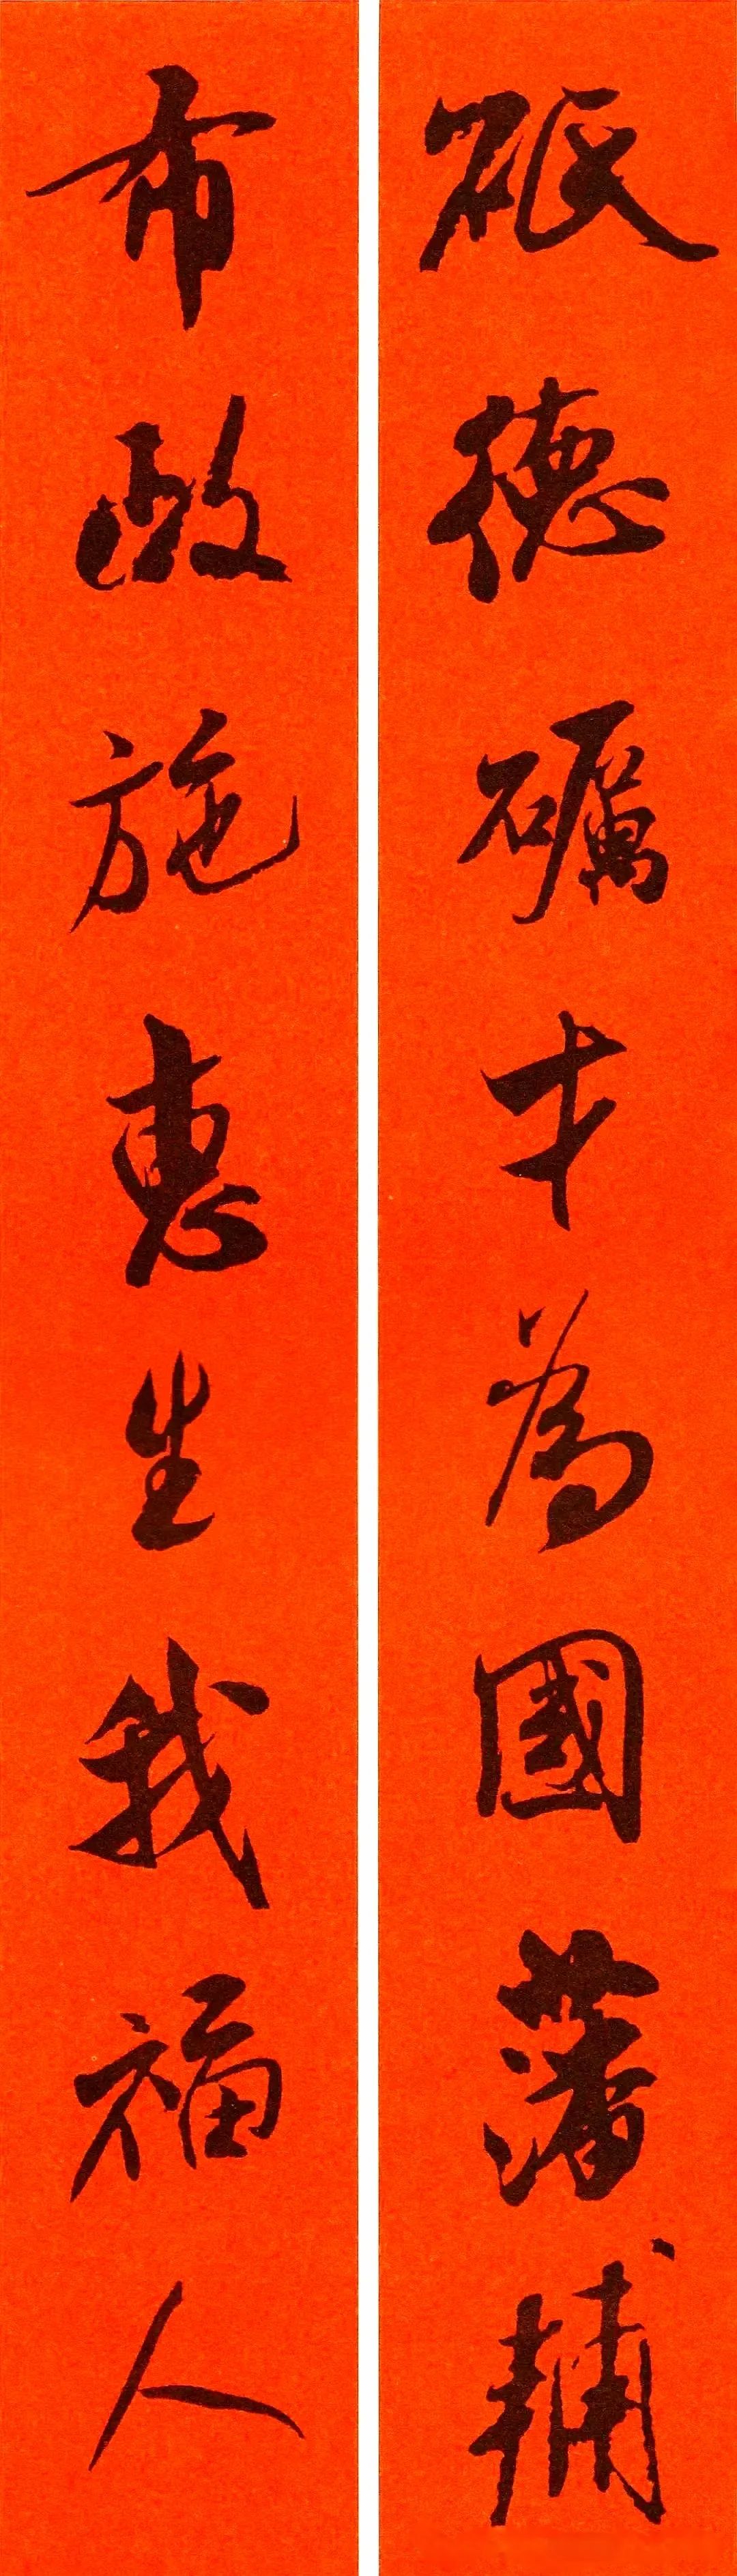 砥德礪才為國藩輔
布政施惠生我福人